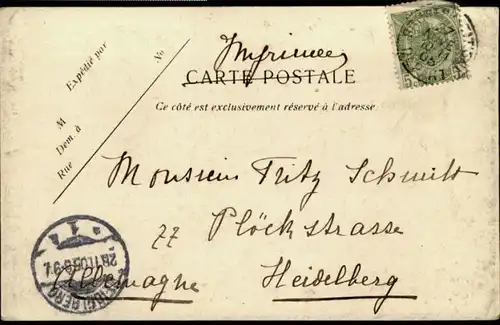 Imprimée
CARTE POSTALE
Ce côté est exclusivement réservé à l'adresse
No
Expédié par
M
Dem. à
Rue
Monsieur Fritz Schmitt
77 Plöckstrasse
Heidelberg
Allemagne
HEIDELBERG